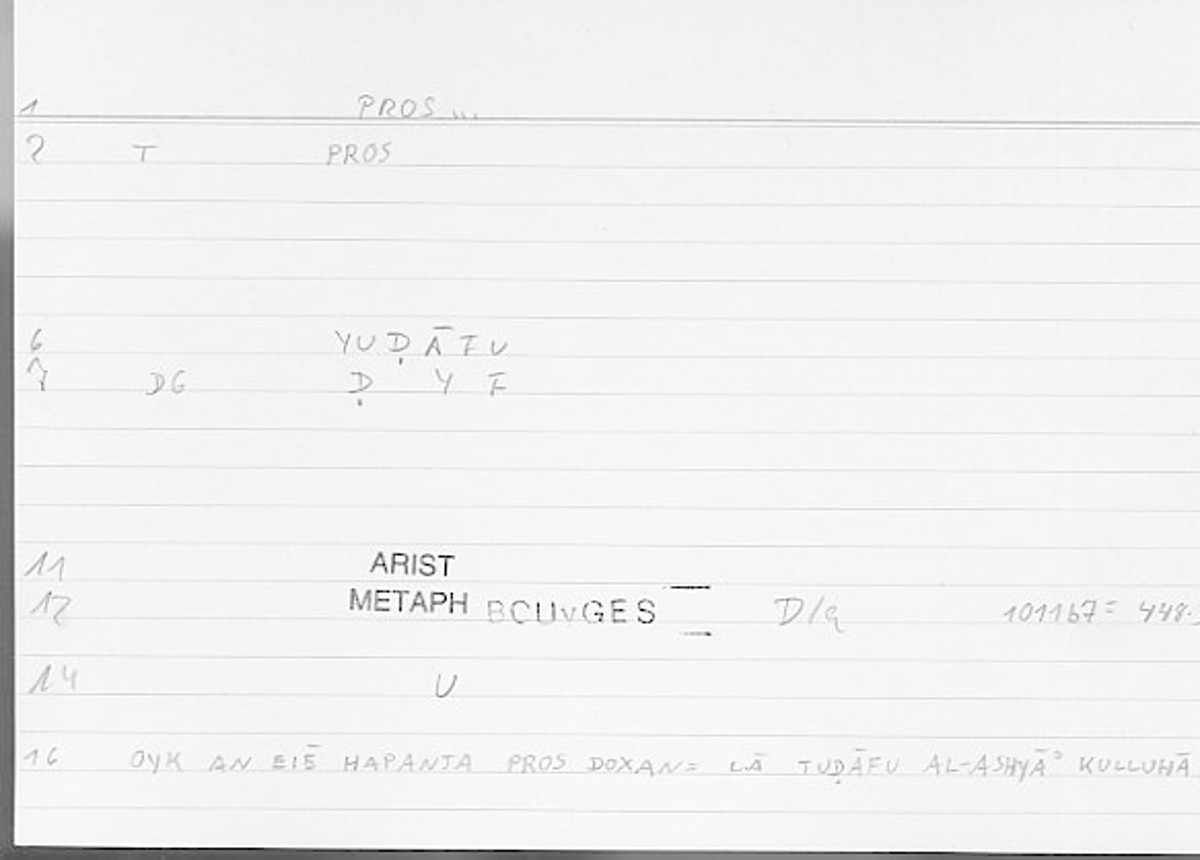 1 PROS ...
2 T PROS
6 YUḌĀFU
7 DG Ḍ Y F
11 ARIST
12 METAPH BOUYGES D/q 1011b7= 448.
14 U
16 OYK AN EIĒ HAPANTA PROS DOXAN= LĀ TUḌĀFU AL-ASHYĀʾ KULLUHĀ